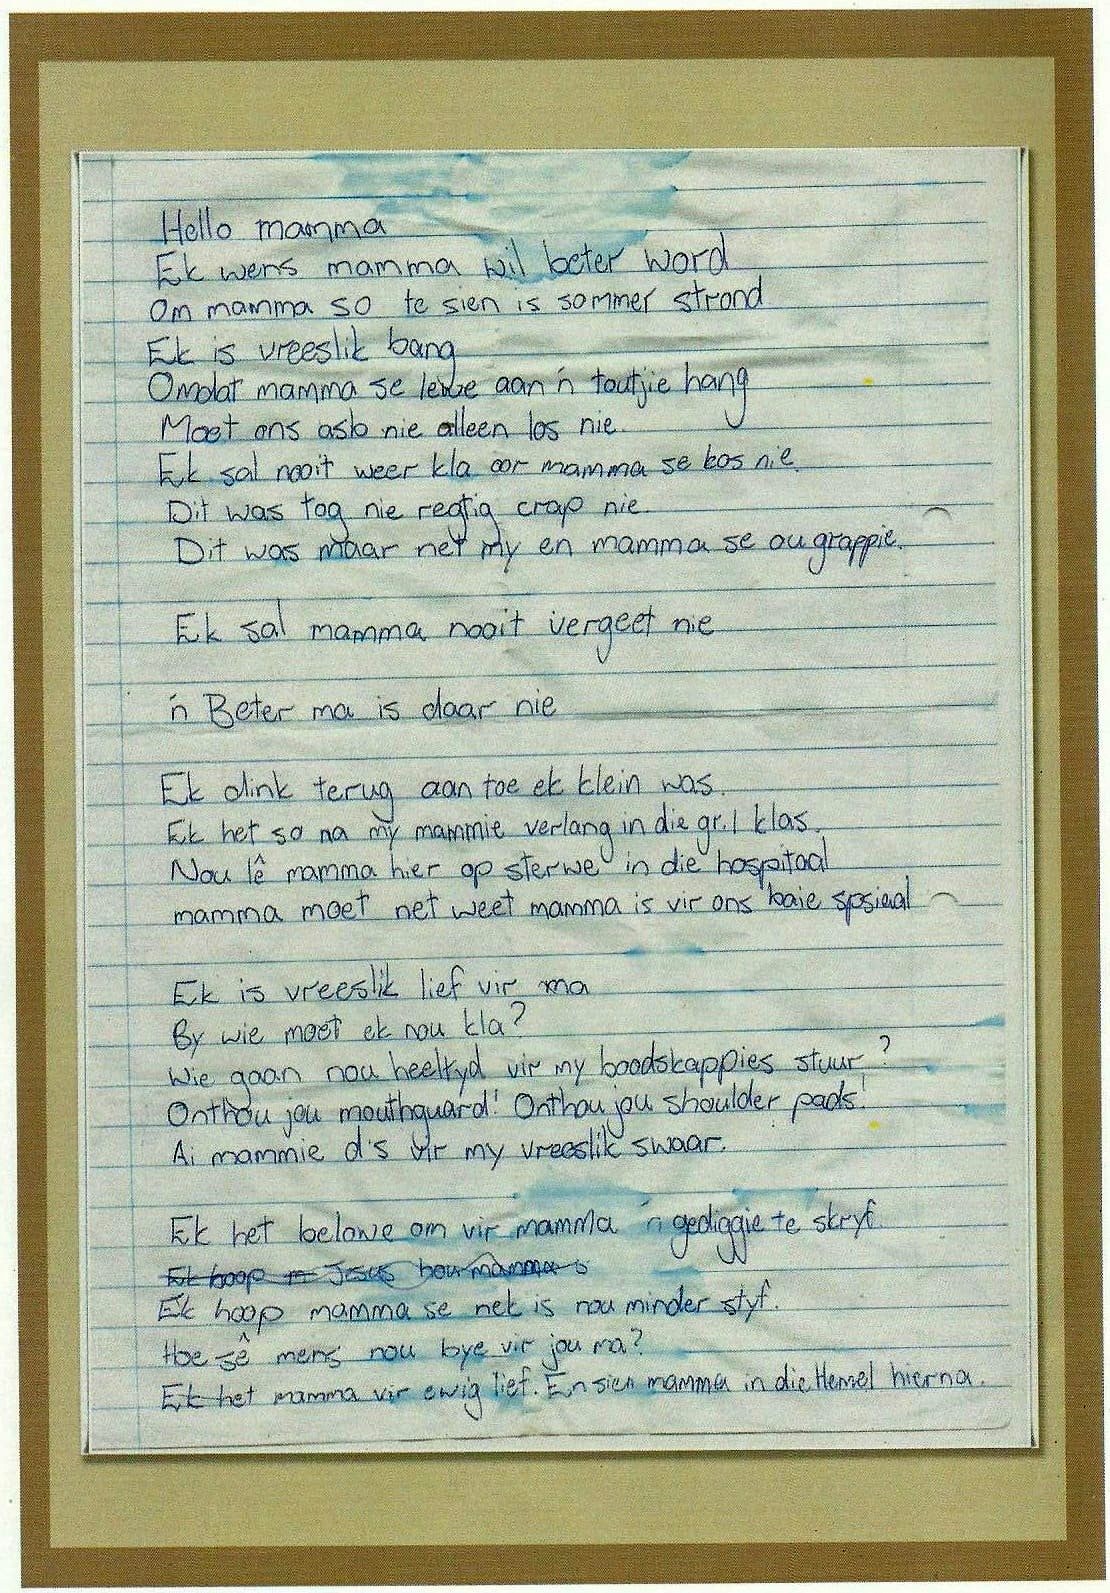 Hello mamma
Ek wens mamma wil beter word
Om mamma so te sien is sommer strond
Ek is vreeslik bang
Omdat mamma se lewe aan 'n toutjie hang
Moet ons asb nie alleen los nie.
Ek sal nooit weer kla oor mamma se kos nie.
Dit was tog nie regtig crap nie.
Dit was maar net my en mamma se ou grappie.
Ek sal mamma nooit vergeet nie
'n Beter ma is daar nie
Ek dink terug aan toe ek klein was.
Ek het so na my mammie verlang in die gr.1 klas.
Nou lê mamma hier op sterwe in die hospitaal
mamma moet net weet mamma is vir ons baie spesiaal
Ek is vreeslik lief vir ma
By wie moet ek nou kla?
Wie gaan nou heeltyd vir my boodskappies stuur?
Onthou jou mouthguard! Onthou jou shoulder pads!
Ai mammie d's vir my vreeslik swaar.
Ek het belowe om vir mamma 'n gediggie te skryf.
Ek hoop Jesus hou mamma
Ek hoop mamma se nek is nou minder styf.
Hoe sê mens nou bye vir jou ma?
Ek het mamma vir ewig lief. En sien mamma in die Hemel hierna.